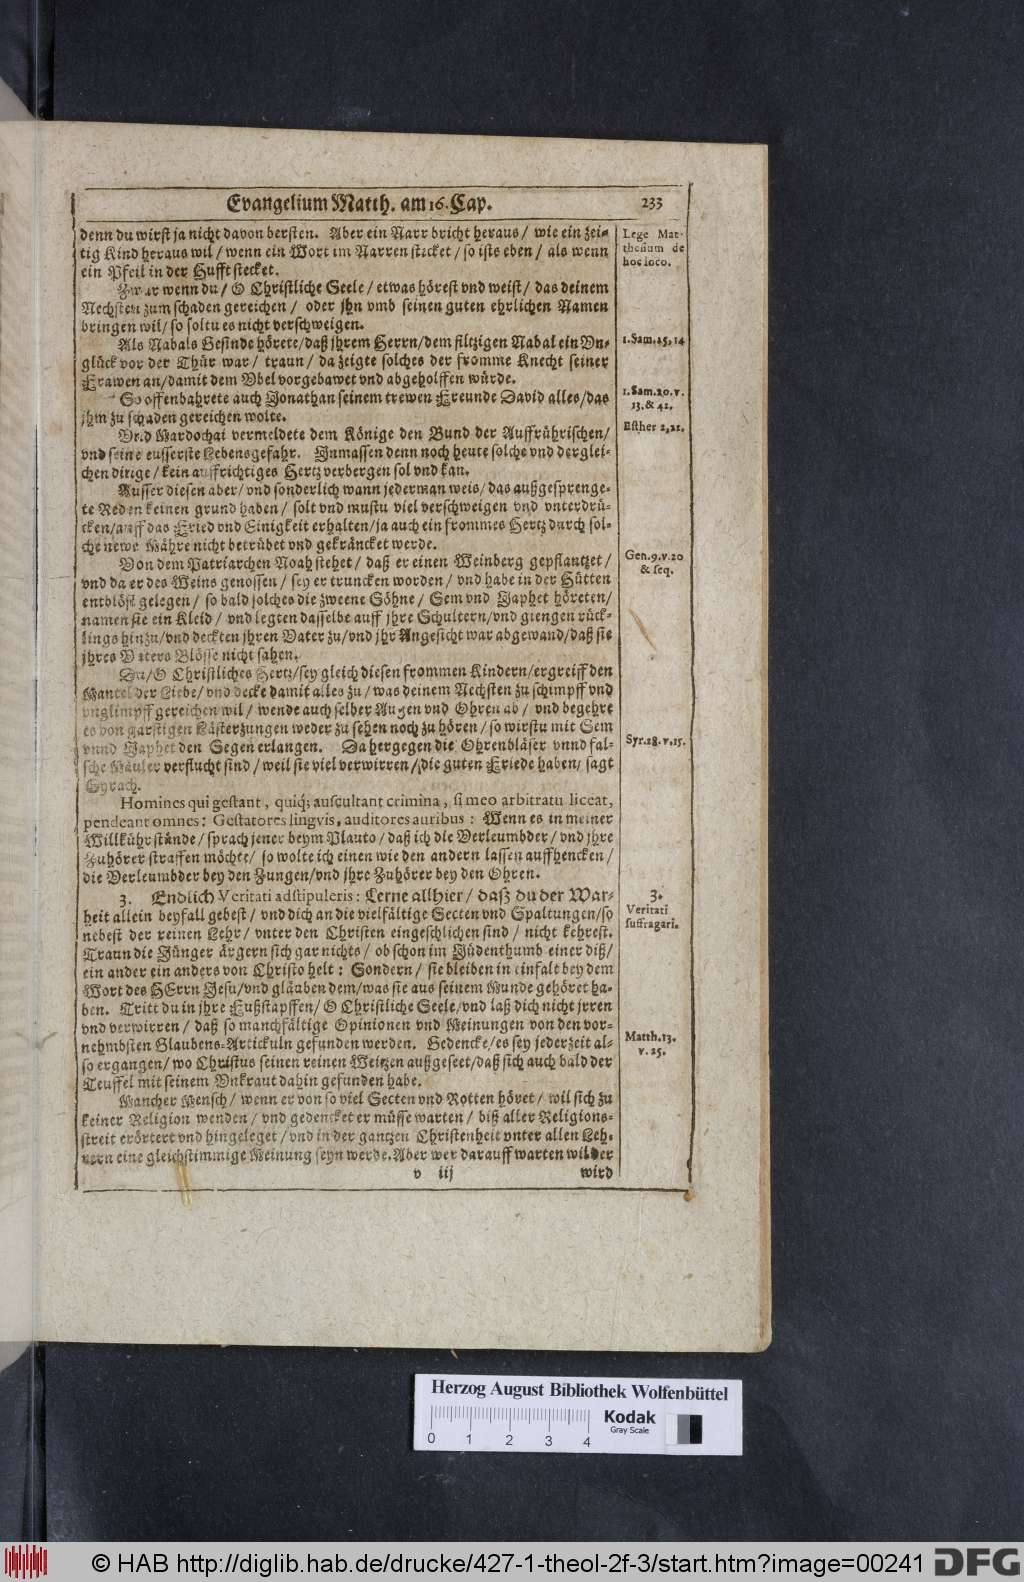 Evangelium Matth. am 16. Cap. 233
denn du wirst ja nicht davon bersten. Aber ein Narr bricht heraus / wie ein zei-
tig Kind heraus wil / wenn ein Wort im Narren stecket / so ists eben / als wenn
ein Pfeil in der Hufft stecket.
Lege Mat-
thesium de
hoc loco.
Zwar wenn du / O Christliche Seele / etwas hörest vnd weist / das deinem
Nechsten zum schaden gereichen / oder jhn vmb seinen guten ehrlichen Namen
bringen wil / so soltu es nicht verschweigen.
Als Nabals Gesinde hörete / daß jhrem Herrn / dem filtzigen Nabal ein Vn-
glück vor der Thür war / traun / da zeigte solches der fromme Knecht seiner
Frawen an / damit dem Vbel vorgebawet vnd abgeholffen würde.
1. Sam. 25, 14
So offenbahrete auch Jonathan seinem trewen Freunde David alles / das
jhm zu schaden gereichen wolte.
1. Sam. 20. v.
13. & 42.
Vnd Mardochai vermeldete dem Könige den Bund der Auffrührischen /
vnd seine eusserste Lebensgefahr. Inmassen denn noch heute solche vnd derglei-
chen dinge / kein auffrichtiges Hertz verbergen sol vnd kan.
Esther 2, 21.
Ausser diesen aber / vnd sonderlich wann jederman weis / das außgesprenge-
te Reden keinen grund haben / solt vnd mustu viel verschweigen vnd vnterdrü-
cken / auff das Fried vnd Einigkeit erhalten / ja auch ein frommes Hertz durch sol-
che newe Mähre nicht betrübet vnd gekräncket werde.
Von dem Patriarchen Noah stehet / daß er einen Weinberg gepflantzet /
vnd da er des Weins genossen / sey er truncken worden / vnd habe in der Hütten
entblöst gelegen / so bald solches die zweene Söhne / Sem vnd Japhet höreten /
namen sie ein Kleid / vnd legten dasselbe auff jhre Schultern / vnd giengen rück-
lings hinzu / vnd deckten jhren Vater zu / vnd jhr Angesicht war abgewand / daß sie
jhres Vaters Blösse nicht sahen.
Gen. 9. v. 20
& seq.
Du / O Christliches Hertz / sey gleich diesen frommen Kindern / ergreiff den
Mantel der Liebe / vnd decke damit alles zu / was deinem Nechsten zu schimpff vnd
vnglimpff gereichen wil / wende auch selber Augen vnd Ohren ab / vnd begehre
es von garstigen Lästerzungen weder zu sehen noch zu hören / so wirstu mit Sem
vnnd Japhet den Segen erlangen. Da hergegen die Ohrenbläser vnnd fal-
sche Mäuler verflucht sind / weil sie viel verwirren / die guten Friede haben / sagt
Syrach.
Syr. 28. v. 15.
Homines qui gestant, quiq; auscultant crimina, si meo arbitratu liceat,
pendeant omnes: Gestatores lingvis, auditores auribus: Wenn es in meiner
Willkühr stünde / sprach jener beym Plauto / daß ich die Verleumbder / vnd jhre
Zuhörer straffen möchte / so wolte ich einen wie den andern lassen auffhencken /
die Verleumbder bey den Zungen / vnd jhre Zuhörer bey den Ohren.
3. Endlich Veritati adstipuleris: Lerne allhier / dasz du der War-
heit allein beyfall gebest / vnd dich an die vielfältige Secten vnd Spaltungen / so
nebest der reinen Lehr / vnter den Christen eingeschlichen sind / nicht kehrest.
Traun die Jünger ärgern sich gar nichts / ob schon im Jüdenthumb einer diß /
ein ander ein anders von Christo helt: Sondern / sie bleiben in einfalt bey dem
Wort des HErrn Jesu / vnd gläuben dem / was sie aus seinem Munde gehöret ha-
ben. Tritt du in jhre Fußstapffen / O Christliche Seele / vnd laß dich nicht jrren
vnd verwirren / daß so manchfältige Opinionen vnd Meinungen von den vor-
nehmbsten Glaubens-Artickuln gefunden werden. Gedencke / es sey jederzeit al-
so ergangen / wo Christus seinen reinen Weitzen außgeseet / daß sich auch bald der
Teuffel mit seinem Vnkraut dahin gefunden habe.
3.
Veritati
suffragari.
Matth. 13.
v. 25.
Mancher Mensch / wenn er von so viel Secten vnd Rotten höret / wil sich zu
keiner Religion wenden / vnd gedencket er müsse warten / biß aller Religions-
streit erörtert vnd hingeleget / vnd in der gantzen Christenheit vnter allen Leh-
rern eine gleichstimmige Meinung seyn werde. Aber wer darauff warten wil der
v iij wird
Herzog August Bibliothek Wolfenbüttel
Kodak
Gray Scale
0 1 2 3 4
© HAB http://diglib.hab.de/drucke/427-1-theol-2f-3/start.htm?image=00241 DFG